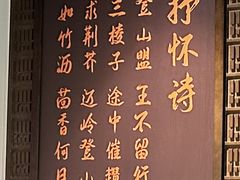 抒怀诗
登山盟王不留行
三棱子途中催
求荆芥岭登山
如竹沥茴香何日